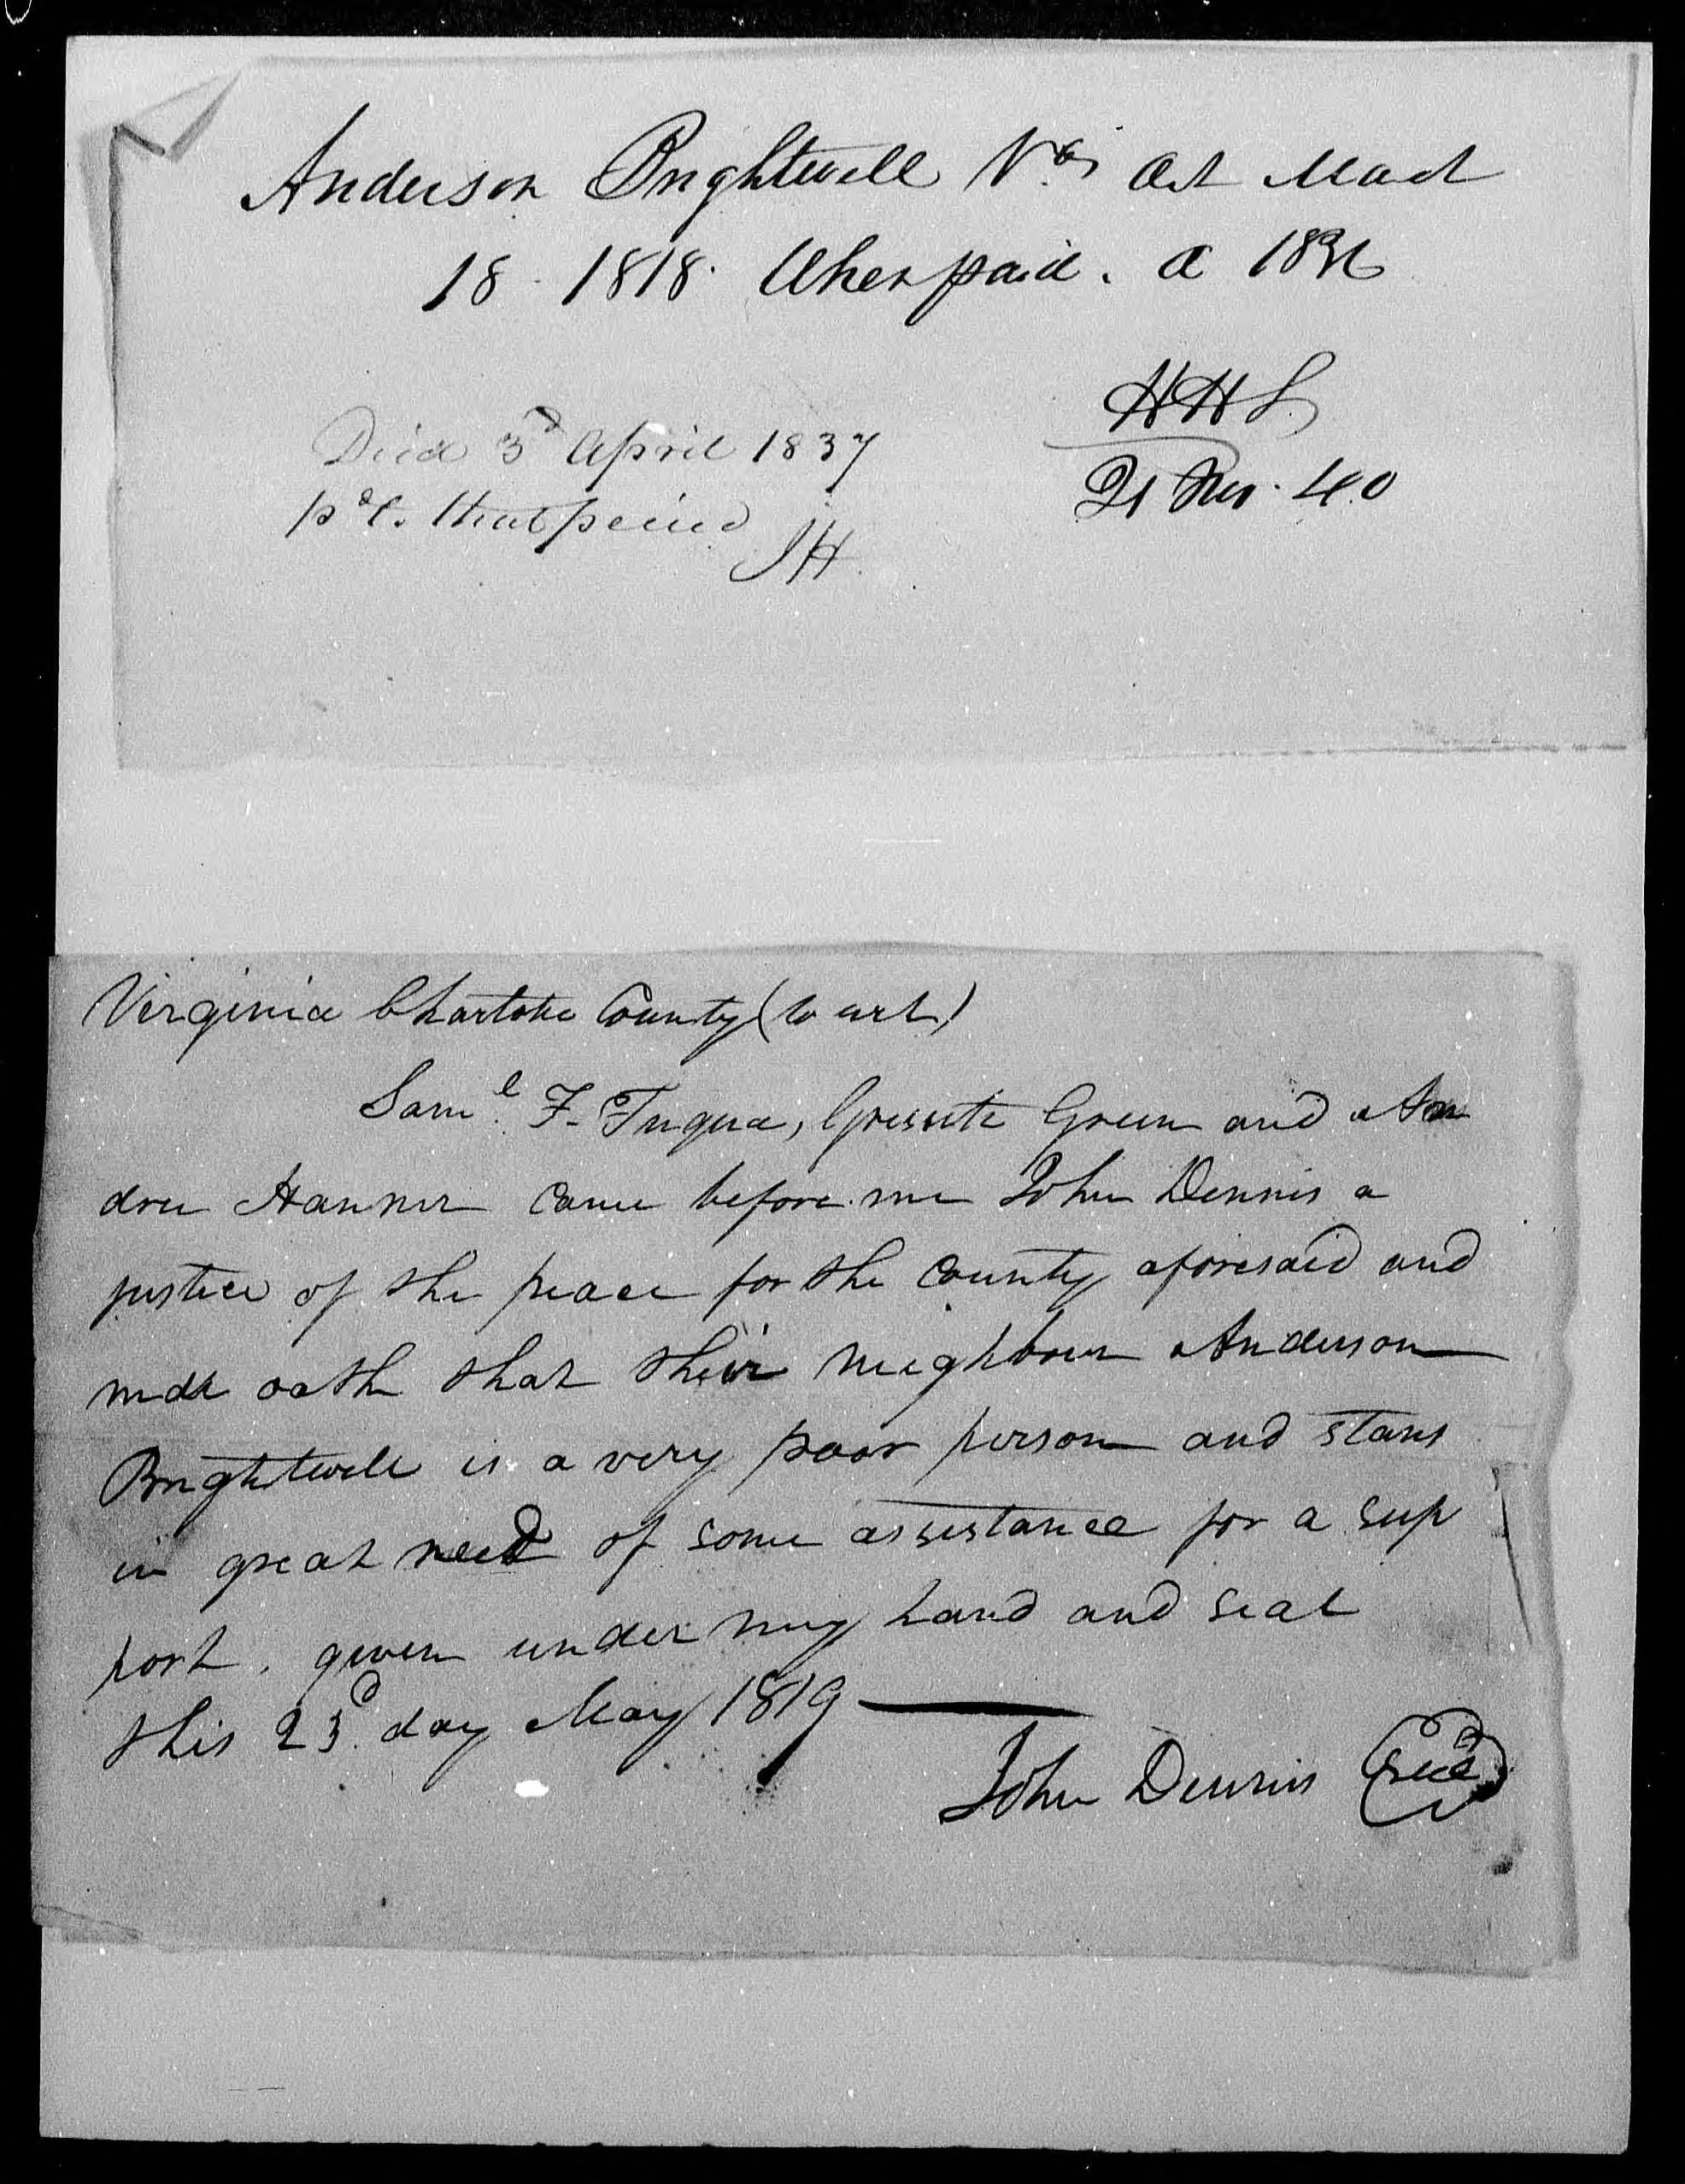 Anderson Brightwell Va. Act March
18. 1818. When paid. a 183
HHS
Died 3d April 1837
pd. to that period
JH
21 . 40
Virginia Charlotte County (to wit)
Saml. F. Fuqua, Green and An
drew Hanner came before me John Dennis a
justice of the peace for the County aforesaid and
mde oath that their neighbour Anderson
Brightwell is a very poor person and stans
in great need of some assistance for a sup
port. given under my hand and seal
this 23d. day May 1819
John Dennis Seal